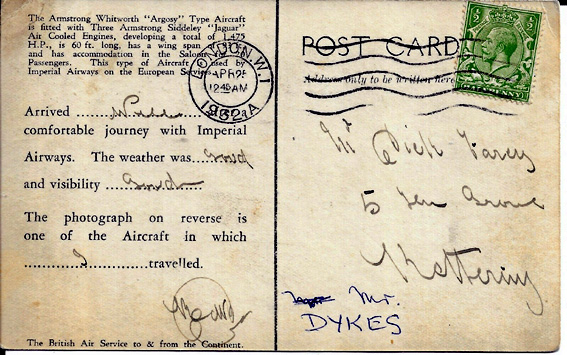 The Armstrong Whitworth "Argosy" Type Aircraft
is fitted with Three Armstrong Siddeley "Jaguar"
Air Cooled Engines, developing a total of 1,475
H.P., is 60 ft. long, has a wing span
and has accommodation in the Saloon
Passengers. This type of Aircraft used by
Imperial Airways on the European Services.
LONDON. W.1
APR 25
12 45 AM
1932
A
POST CARD
Address only to be written here
Arrived
comfortable journey with Imperial
Airways. The weather was good
and visibility Good
The photograph on reverse is
one of the Aircraft in which
I travelled.
Mr Dick
5
Kettering
Mr.
DYKES
The British Air Service to & from the Continent.